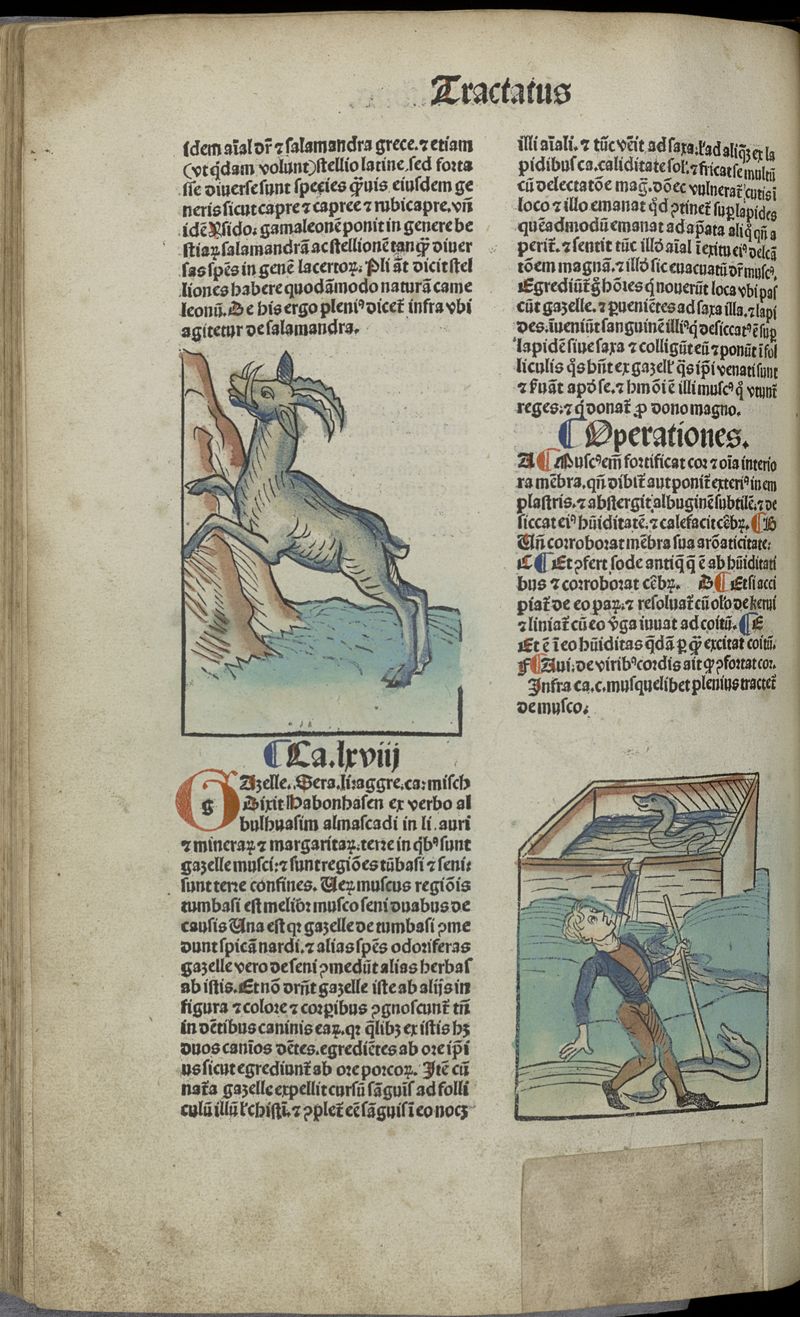 Tractatus
idem aīal dr̄ ⁊ salamandra grece. ⁊ etiam
(vt q̇dam volunt) stellio latine, sed forta
sse diuerse sunt species q̄uis eiusdem ge
neris sicut capre ⁊ capree ⁊ rubicapre. vn̄
idē ysido. gamaleonē ponit in genere be
stiaꝝ salamandrā ac stellionē tanq̄ȝ diuer
sas spēs in genē lacertoꝝ. Pli āt dicit stel
liones habere quodāmodo naturā came
leonū. De his ergo pleniꝰ dicet̄ infra vbi
agitetur de salamandra.
¶ Ca. lxviij
GAzelle. Sera. li: aggre. ca: misch
Dixit Habonhasen ex verbo al
bulhuasim almascadi in li. auri
⁊ mineraꝝ ⁊ margaritaꝝ. terre in q̇bꝰ sunt
gazelle musci: ⁊ sunt regiōes tūbasi ⁊ seni:
sunt terre confines. Ueꝝ muscus regiōis
tumbasi est melior musco seni duabus de
causis Una est qꝛ gazelle de tumbasi ꝯme
dunt spicā nardi. ⁊ alias spēs odoriferas
gazelle vero de seni ꝯmedūt alias herbas
ab istis. Et nō drn̄t gazelle iste ab alijs in
figura ⁊ colore ⁊ corpibus ꝯgnoscunt̄ tn̄
in dētibus caninis eaꝝ. qꝛ q̇libȝ ex istis hȝ
duos canīos dētes. egrediētes ab ore ip̄i
us sicut egrediunt̄ ab ore porcoꝝ. Itē cū
nat̄a gazelle expellit cursū sāguīs ad folli
culū illū l̓ chistī. ⁊ ꝯplet̄ eē sāguis ī eo nocȝ
illi aīali. ⁊ tūc vēit ad saxa: l̓ ad aliq̄ȝ ex la
pidibus ca. caliditate sol. ⁊ fricat se multū
cū delectatōe mag. dōec vulnerat̄ cutis ī
loco ⁊ illo emanat q̇d ꝯtinet̄ sup lapides
quēadmodū emanat ad apata aliq̄ qn̄ a
perit̄. ⁊ sentit tūc illd̓ aīal ī exitu eiꝰ delcā
tōem magnā. ⁊ illd̓ sic euacuatū dr̄ muscꝰ.
Egrediūt̄ ḡ hōies q̇ nouerūt loca vbi pas
cūt gazelle. ⁊ ꝑueniētes ad saxa illa. ⁊ lapi
des. īueniūt sanguinē illiꝰ q̇ desiccatꝰ ē sup
lapidē siue saxa ⁊ colligūt eū ⁊ ponūt ī fol
liculis q̇s hn̄t ex gazell̓ q̇s ip̄i venati sunt
⁊ ẜuāt apd̓ se. ⁊ hm̄ōi ē ille muscꝰ q̇ vtunt̄
reges: ⁊ q̇ donat̄ ꝓ dono magno.
¶ Operationes.
A ¶ Muscꝰ em̄ fortificat cor ⁊ oīa interio
ra mēbra. qn̄ bibit̄ aut ponit̄ exteriꝰ in em
plastris. ⁊ abstergit albuginē subtilē. ⁊ de
siccat eiꝰ hūiditatē. ⁊ calefacit cēbꝝ. ¶ B
Un̄ corroborat mēbra sua arōaticitate.
C ¶ Et ꝯfert sode antiq̄ q̄ ē ab hūiditati
bus ⁊ corroborat cēbꝝ. D ¶ Et si acci
piat̄ de eo paꝝ. ⁊ resoluat̄ cū oleo de keiri
⁊ liniat̄ cū eo v̓ga iuuat ad coitū. ¶ E
Et ē ī eo hūiditas q̄dā ꝑ q̄ȝ excitat coitū.
F ¶ Aui: de viribꝰ cordis ait qȝ ꝯfortat cor.
Infra ca. c. musquelibet plenius tractet̄
de musco.